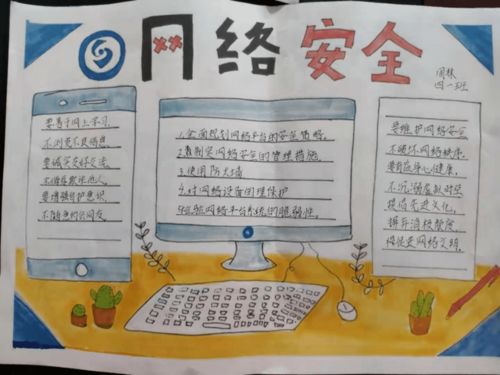 网络安全
周林
四一班
要善于网上学习
不浏览不良信息
要诚实友好交流
不侮辱欺诈他人
要增强自护意识
不随意约会网友
1.全面规划网络平台的安全策略。
2.制定网络安全的管理措施。
3.使用防火墙
4.对网络设备的理保护
网络平台系统的脆弱性。
要维护网络安全
不破坏网络秩序。
要有益身心健康。
不沉溺虚拟时空
提倡先进文化。
摒弃消极颓废
促进网络文明。